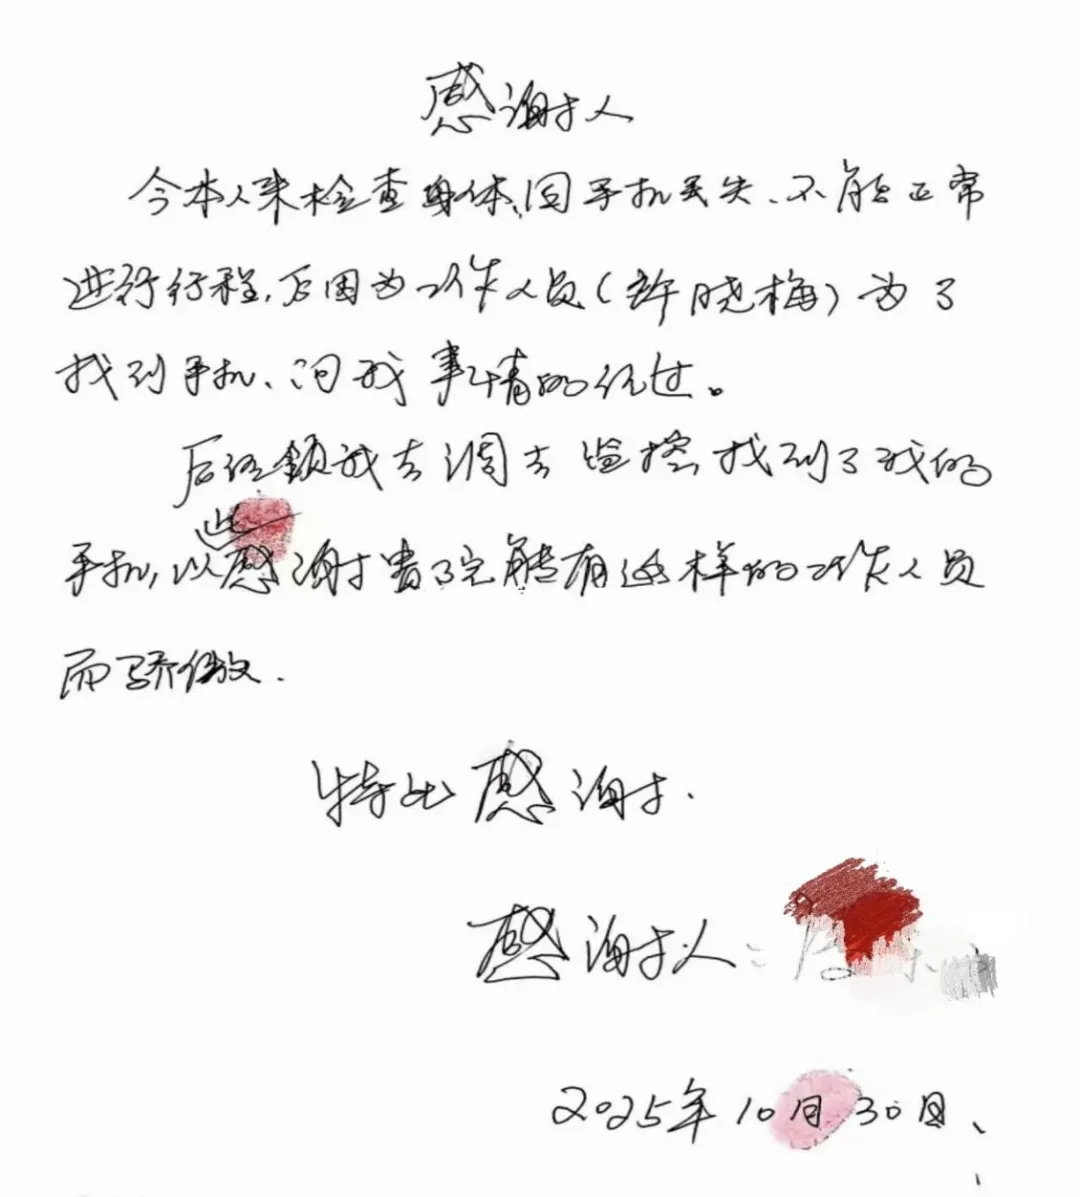 感谢人
今本人来检查身体、因手机丢失、不能正常
进行行程,后因为工作人员(许晓梅)为了
找到手机、问我事情的经过。
后经领我去调去监控找到了我的
手机,以此感谢贵院能有这样的工作人员
而骄傲.
特此感谢.
感谢人:
2025年10月30日、